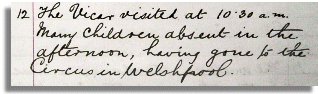 12 The Vicar visited at 10.30 a.m.
Many children absent in the
afternoon, having gone to the
Circus in Welshpool.